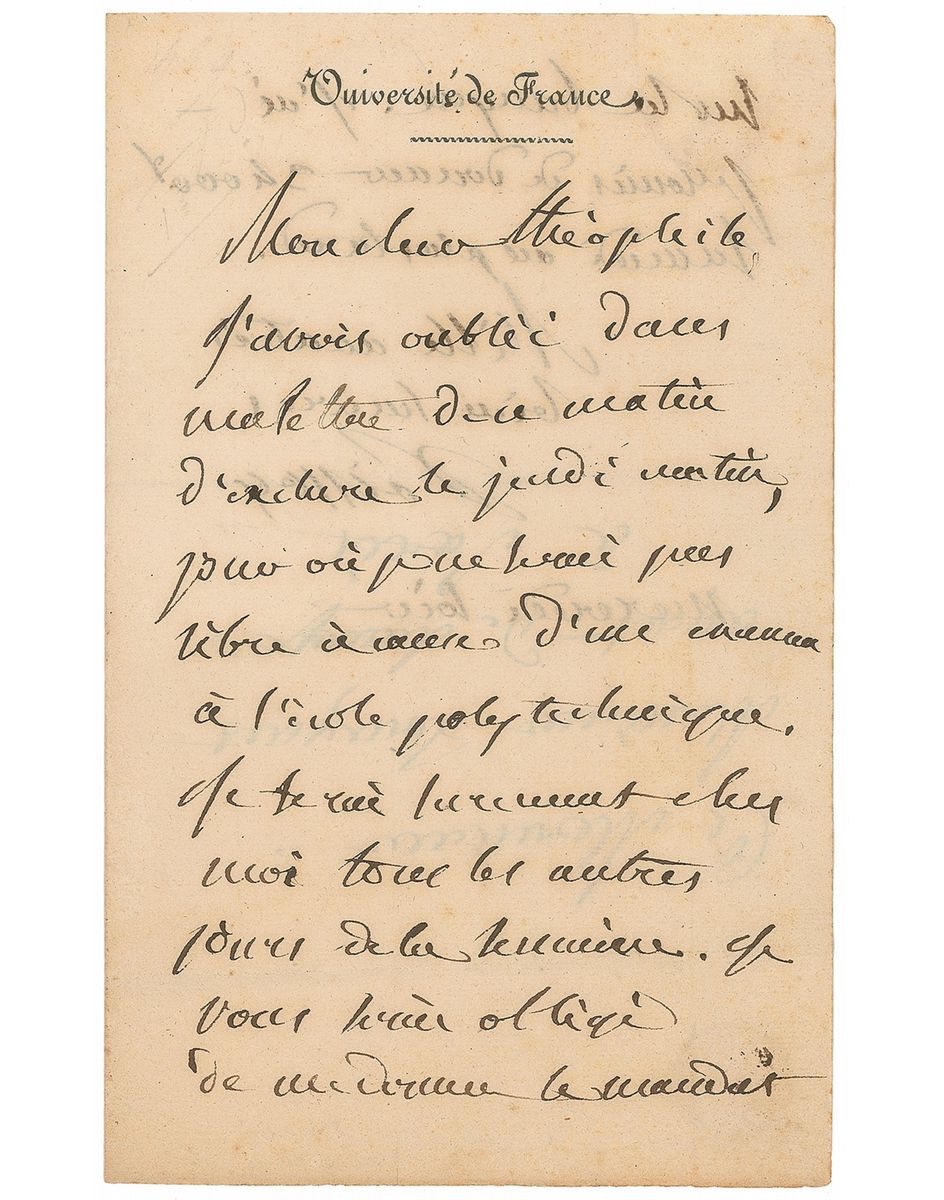 Université de France
Mon cher Théophile,
J'avois oublié dans
ma lettre de ce matin
d'exclure le jeudi matin,
jour où je ne serai pas
libre à cause d'un examen
à l'école polytechnique.
Je serai surement chez
moi tous les autres
jours de la semaine. Je
vous serai obligé
de me donner le mandat